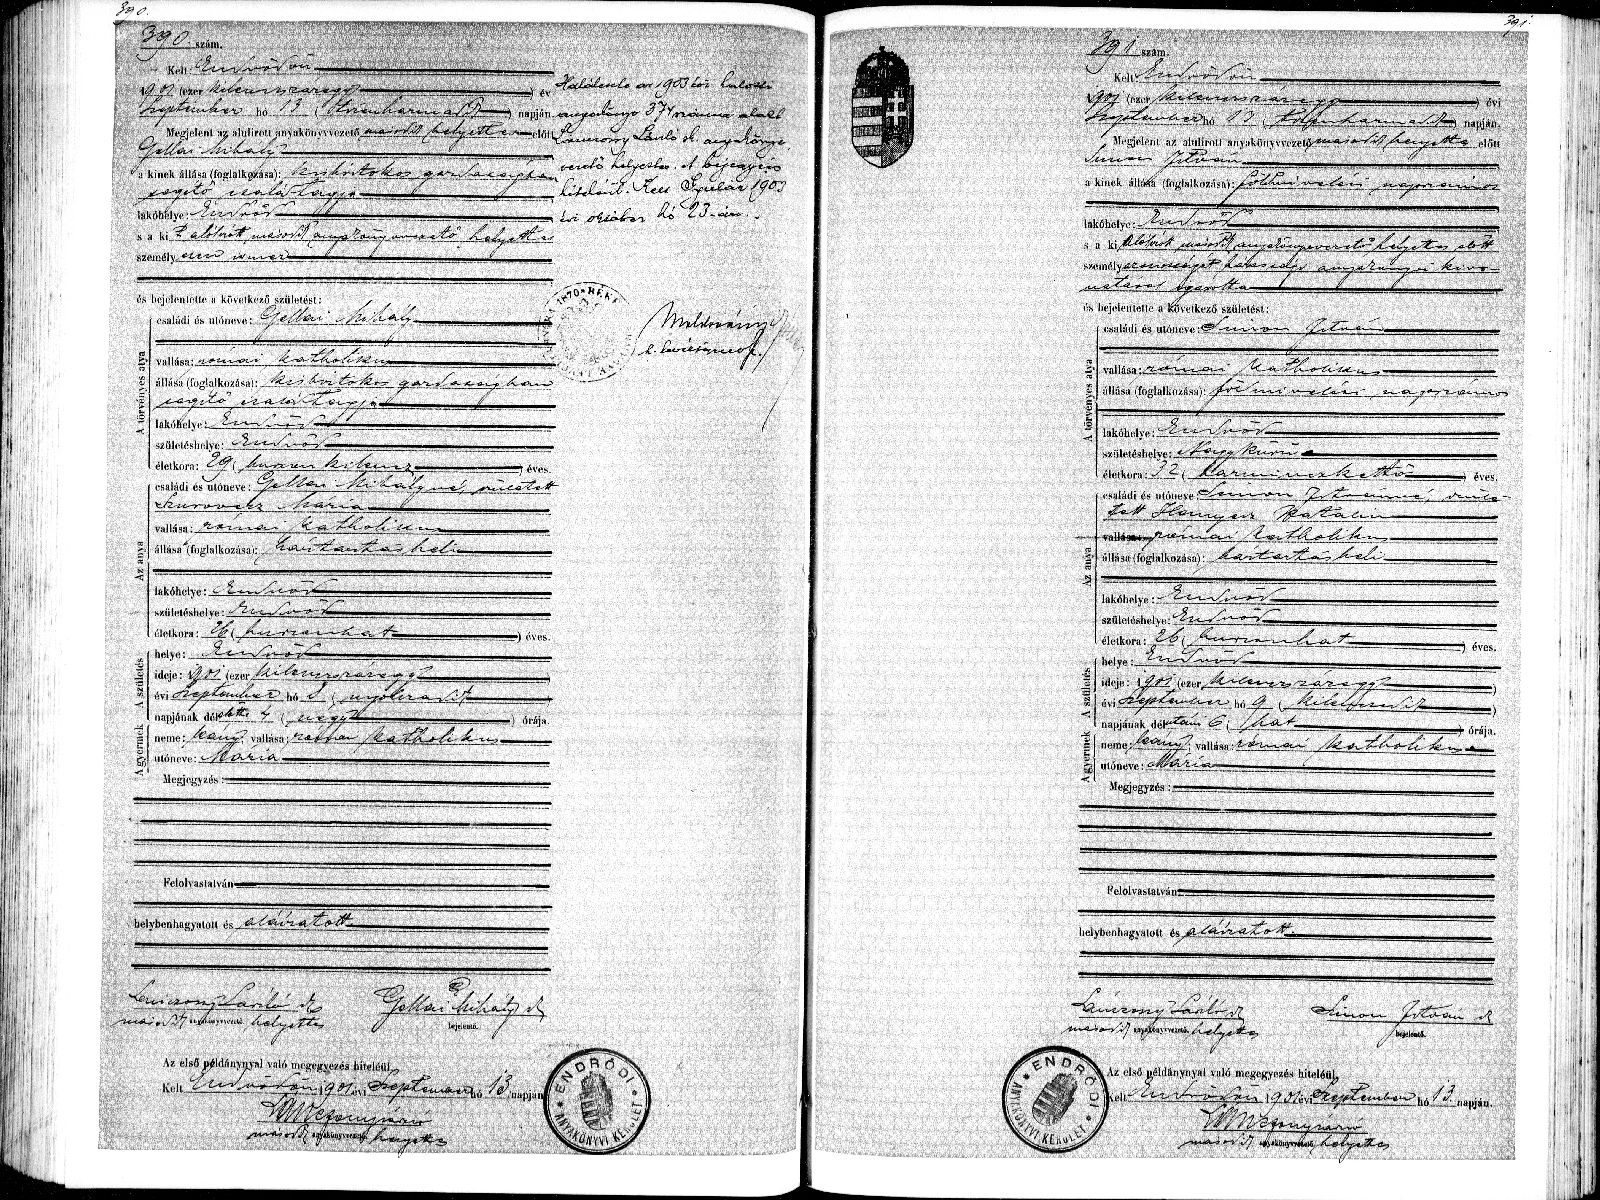 390.
390 szám.
Kelt Endrődön
1901 (ezer kilenczszázegy) év
Szeptember hó 13 (tizenharmadik) napján.
Megjelent az alulirott anyakönyvvezető második helyettes előtt
Gellai Mihály
a kinek állása (foglalkozása): kisbirtokos gazdaságban
segitő családtagja
lakóhelye: Endrőd
s a ki alólirott második anyakönyvvezető helyettes
személy esen ismer
és bejelentette a következő születést:
A törvényes atya
családi és utóneve: Gellai Mihály
vallása: római katholikus
állása (foglalkozása): kisbirtokos gazdaságban
segitő családtagja
lakóhelye: Endrőd
születéshelye: Endrőd
életkora: 29 (huszonkilencz) éves.
Az anya
családi és utóneve: Gellai Mihályné, született
Szurovecz Mária
vallása: római katholikus
állása (foglalkozása): háztartásbeli
lakóhelye: Endrőd
születéshelye: Endrőd
életkora: 26 (huszonhat) éves.
A születés
helye: Endrőd
ideje: 1901 (ezer kilenczszázegy)
évi Szeptember hó 8 (nyolczadik)
napjának délelőtti 4 (négy) órája.
A gyermek
neme: leány, vallása: római katholikus
utóneve: Mária
Megjegyzés:
Felolvastatván
helybenhagyatott és aláiratott
Lánczony László sk Gellai Mihály sk
második anyakönyvvezető helyettes bejelentő.
Az első példánynyal való megegyezés hiteléül
Kelt Endrődön 1901 évi Szeptember hó 13. napján
második anyakönyvvezető helyettes
ENDRŐDI ANYAKÖNYVI KERÜLET
Halálozta az 1903 évi halotti
anyakönyv 374 száma alatt
Lánczony László sk. anyakönyv-
vezető helyettes. A bejegyzés
hiteléül. Kelt Gyulán 1903
évi október hó 23-án.
391
391 szám.
Kelt Endrődön
1901 (ezer kilenczszázegy) évi
Szeptember hó 13 (tizenharmadik) napján.
Megjelent az alulirott anyakönyvvezető második helyettes előtt
Simon István
a kinek állása (foglalkozása): földmivelési napszámos
lakóhelye: Endrőd
s a ki alólirott második anyakönyvvezető helyettes előtt
személyazonosságát házassági anyakönyvi kivo-
natával igazolta
és bejelentette a következő születést:
A törvényes atya
családi és utóneve: Simon István
vallása: római katholikus
állása (foglalkozása): földmivelési napszámos
lakóhelye: Endrőd
születéshelye: Nagykürü
életkora: 32 (harminczkettő) éves.
Az anya
családi és utóneve Simon Istvánné, szüle-
tett Hornyik Katalin
vallása: római katholikus
állása (foglalkozása): háztartásbeli
lakóhelye: Endrőd
születéshelye: Endrőd
életkora: 26 (huszonhat) éves.
A születés
helye: Endrőd
ideje: 1901 (ezer kilenczszázegy)
évi Szeptember hó 9 (kilenczedik)
napjának délutáni 6 (hat) órája.
A gyermek
neme: leány, vallása: római katholikus
utóneve: Mária
Megjegyzés:
Felolvastatván
helybenhagyatott és aláiratott.
Lánczony László sk Simon István sk
második anyakönyvvezető helyettes bejelentő.
Az első példánynyal való megegyezés hiteléül,
Kelt Endrődön 1901 évi Szeptember hó 13. napján.
második anyakönyvvezető helyettes
ENDRŐDI ANYAKÖNYVI KERÜLET